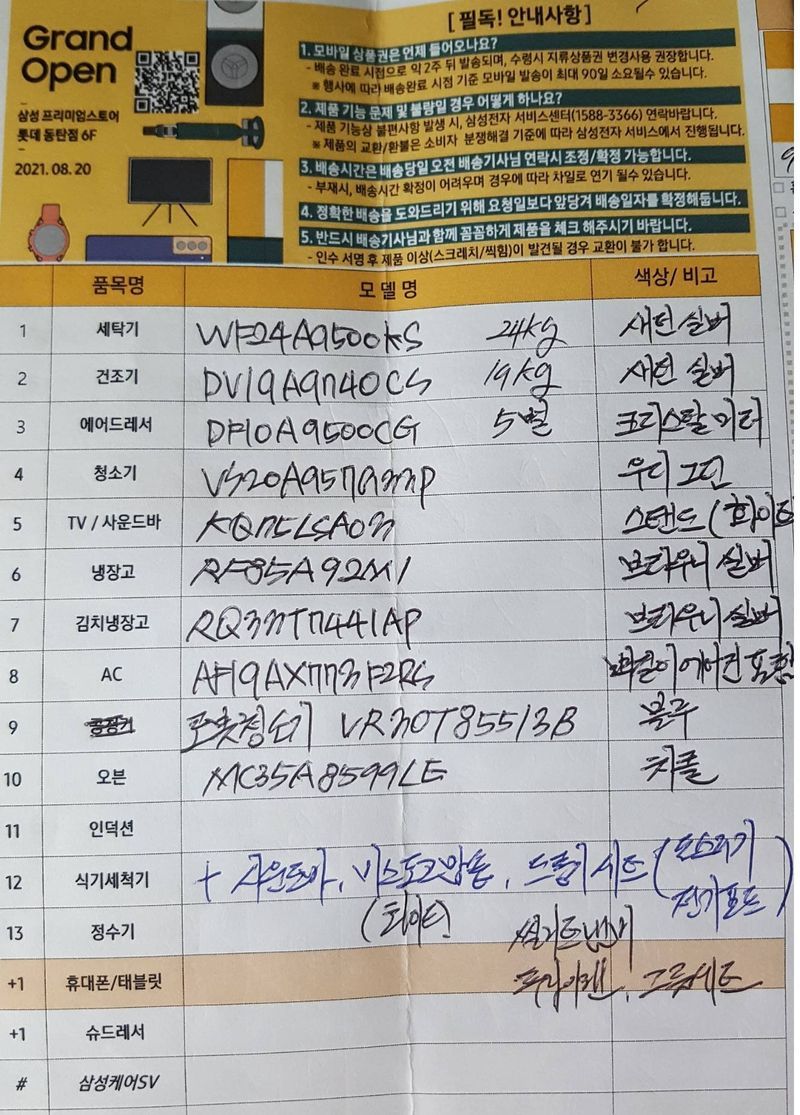 Grand
Open
삼성 프리미엄스토어
롯데 동탄점 6F
2021. 08. 20
[ 필독! 안내사항 ]
1. 모바일 상품권은 언제 들어오나요?
- 배송 완료 시점으로 약 2주 뒤 발송되며, 수령시 지류상품권 변경사용 권장합니다.
※ 행사에 따라 배송완료 시점 기준 모바일 발송이 최대 90일 소요될수 있습니다.
2. 제품 기능 문제 및 불량일 경우 어떻게 하나요?
- 제품 기능상 불편사항 발생 시, 삼성전자 서비스센터(1588-3366) 연락바랍니다.
※ 제품의 교환/환불은 소비자 분쟁해결 기준에 따라 삼성전자 서비스에서 진행됩니다.
3. 배송시간은 배송당일 오전 배송기사님 연락시 조정/확정 가능합니다.
- 부재시, 배송시간 확정이 어려우며 경우에 따라 차일로 연기 될수 있습니다.
4. 정확한 배송을 도와드리기 위해 요청일보다 앞당겨 배송일자를 확정해둡니다.
5. 반드시 배송기사님과 함께 꼼꼼하게 제품을 체크 해주시기 바랍니다.
- 인수 서명 후 제품 이상(스크래치/찍힘)이 발견될 경우 교환이 불가 합니다.
품목명 모델명 색상/ 비고
1 세탁기 WF24A9500KS 24kg 새턴 실버
2 건조기 DV19A9740CS 19kg 새턴 실버
3 에어드레서 DF10A9500CG 5벌 크리스탈 미러
4 청소기 VS20A957933P 우디 그린
5 TV / 사운드바 KQ75LSA03 스탠드 (화이트
6 냉장고 RF85A92M1 브라우니 실버
7 김치냉장고 RQ33T7441AP 브라우니 실버
8 AC AF19AX773F2RS 벽걸이에어컨 포함
9 로봇청소기 VR30T85513B 블루
10 오븐 MC35A8599LE 차콜
11 인덕션
12 식기세척기 + 사운드바, 비스포크 큐브, 드롱기 세트 (토스터기
전기포트)
13 정수기 (화이트) 실리트 냄비
+1 휴대폰/태블릿 후라이팬, 그릇세트
+1 슈드레서
# 삼성케어SV